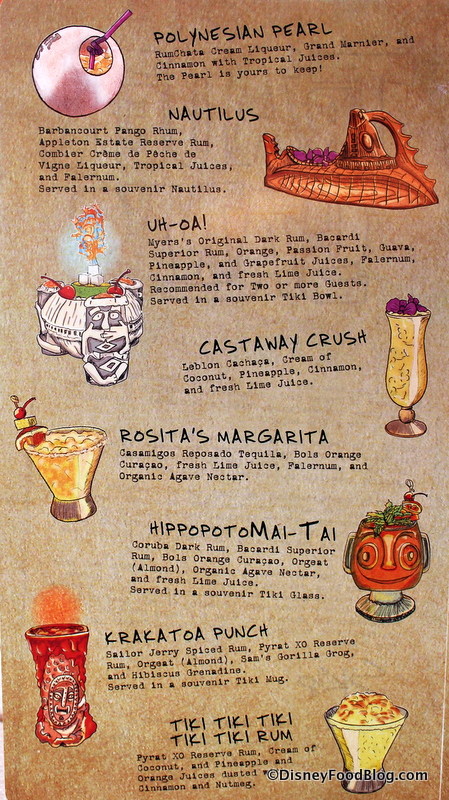 POLYNESIAN PEARL
RumChata Cream Liqueur, Grand Marnier, and
Cinnamon with Tropical Juices.
The Pearl is yours to keep!
NAUTILUS
Barbancourt Pango Rhum,
Appleton Estate Reserve Rum,
Combier Crème de Pêche de
Vigne Liqueur, Tropical Juices,
and Falernum.
Served in a souvenir Nautilus.
UH-OA!
Myers's Original Dark Rum, Bacardi
Superior Rum, Orange, Passion Fruit, Guava,
Pineapple, and Grapefruit Juices, Falernum,
Cinnamon, and fresh Lime Juice.
Recommended for Two or more Guests.
Served in a souvenir Tiki Bowl.
CASTAWAY CRUSH
Leblon Cachaça, Cream of
Coconut, Pineapple, Cinnamon,
and fresh Lime Juice.
ROSITA'S MARGARITA
Casamigos Reposado Tequila, Bols Orange
Curaçao, fresh Lime Juice, Falernum, and
Organic Agave Nectar.
HIPPOPOTOMAI-TAI
Coruba Dark Rum, Bacardi Superior
Rum, Bols Orange Curaçao, Orgeat
(Almond), Organic Agave Nectar,
and fresh Lime Juice.
Served in a souvenir Tiki Glass.
KRAKATOA PUNCH
Sailor Jerry Spiced Rum, Pyrat XO Reserve
Rum, Orgeat (Almond), Sam's Gorilla Grog,
and Hibiscus Grenadine.
Served in a souvenir Tiki Mug.
TIKI TIKI TIKI
TIKI TIKI RUM
Pyrat XO Reserve Rum, Cream of
Coconut, and Pineapple and
Orange Juices dusted
Cinnamon and Nutmeg.
©DisneyFoodBlog.com